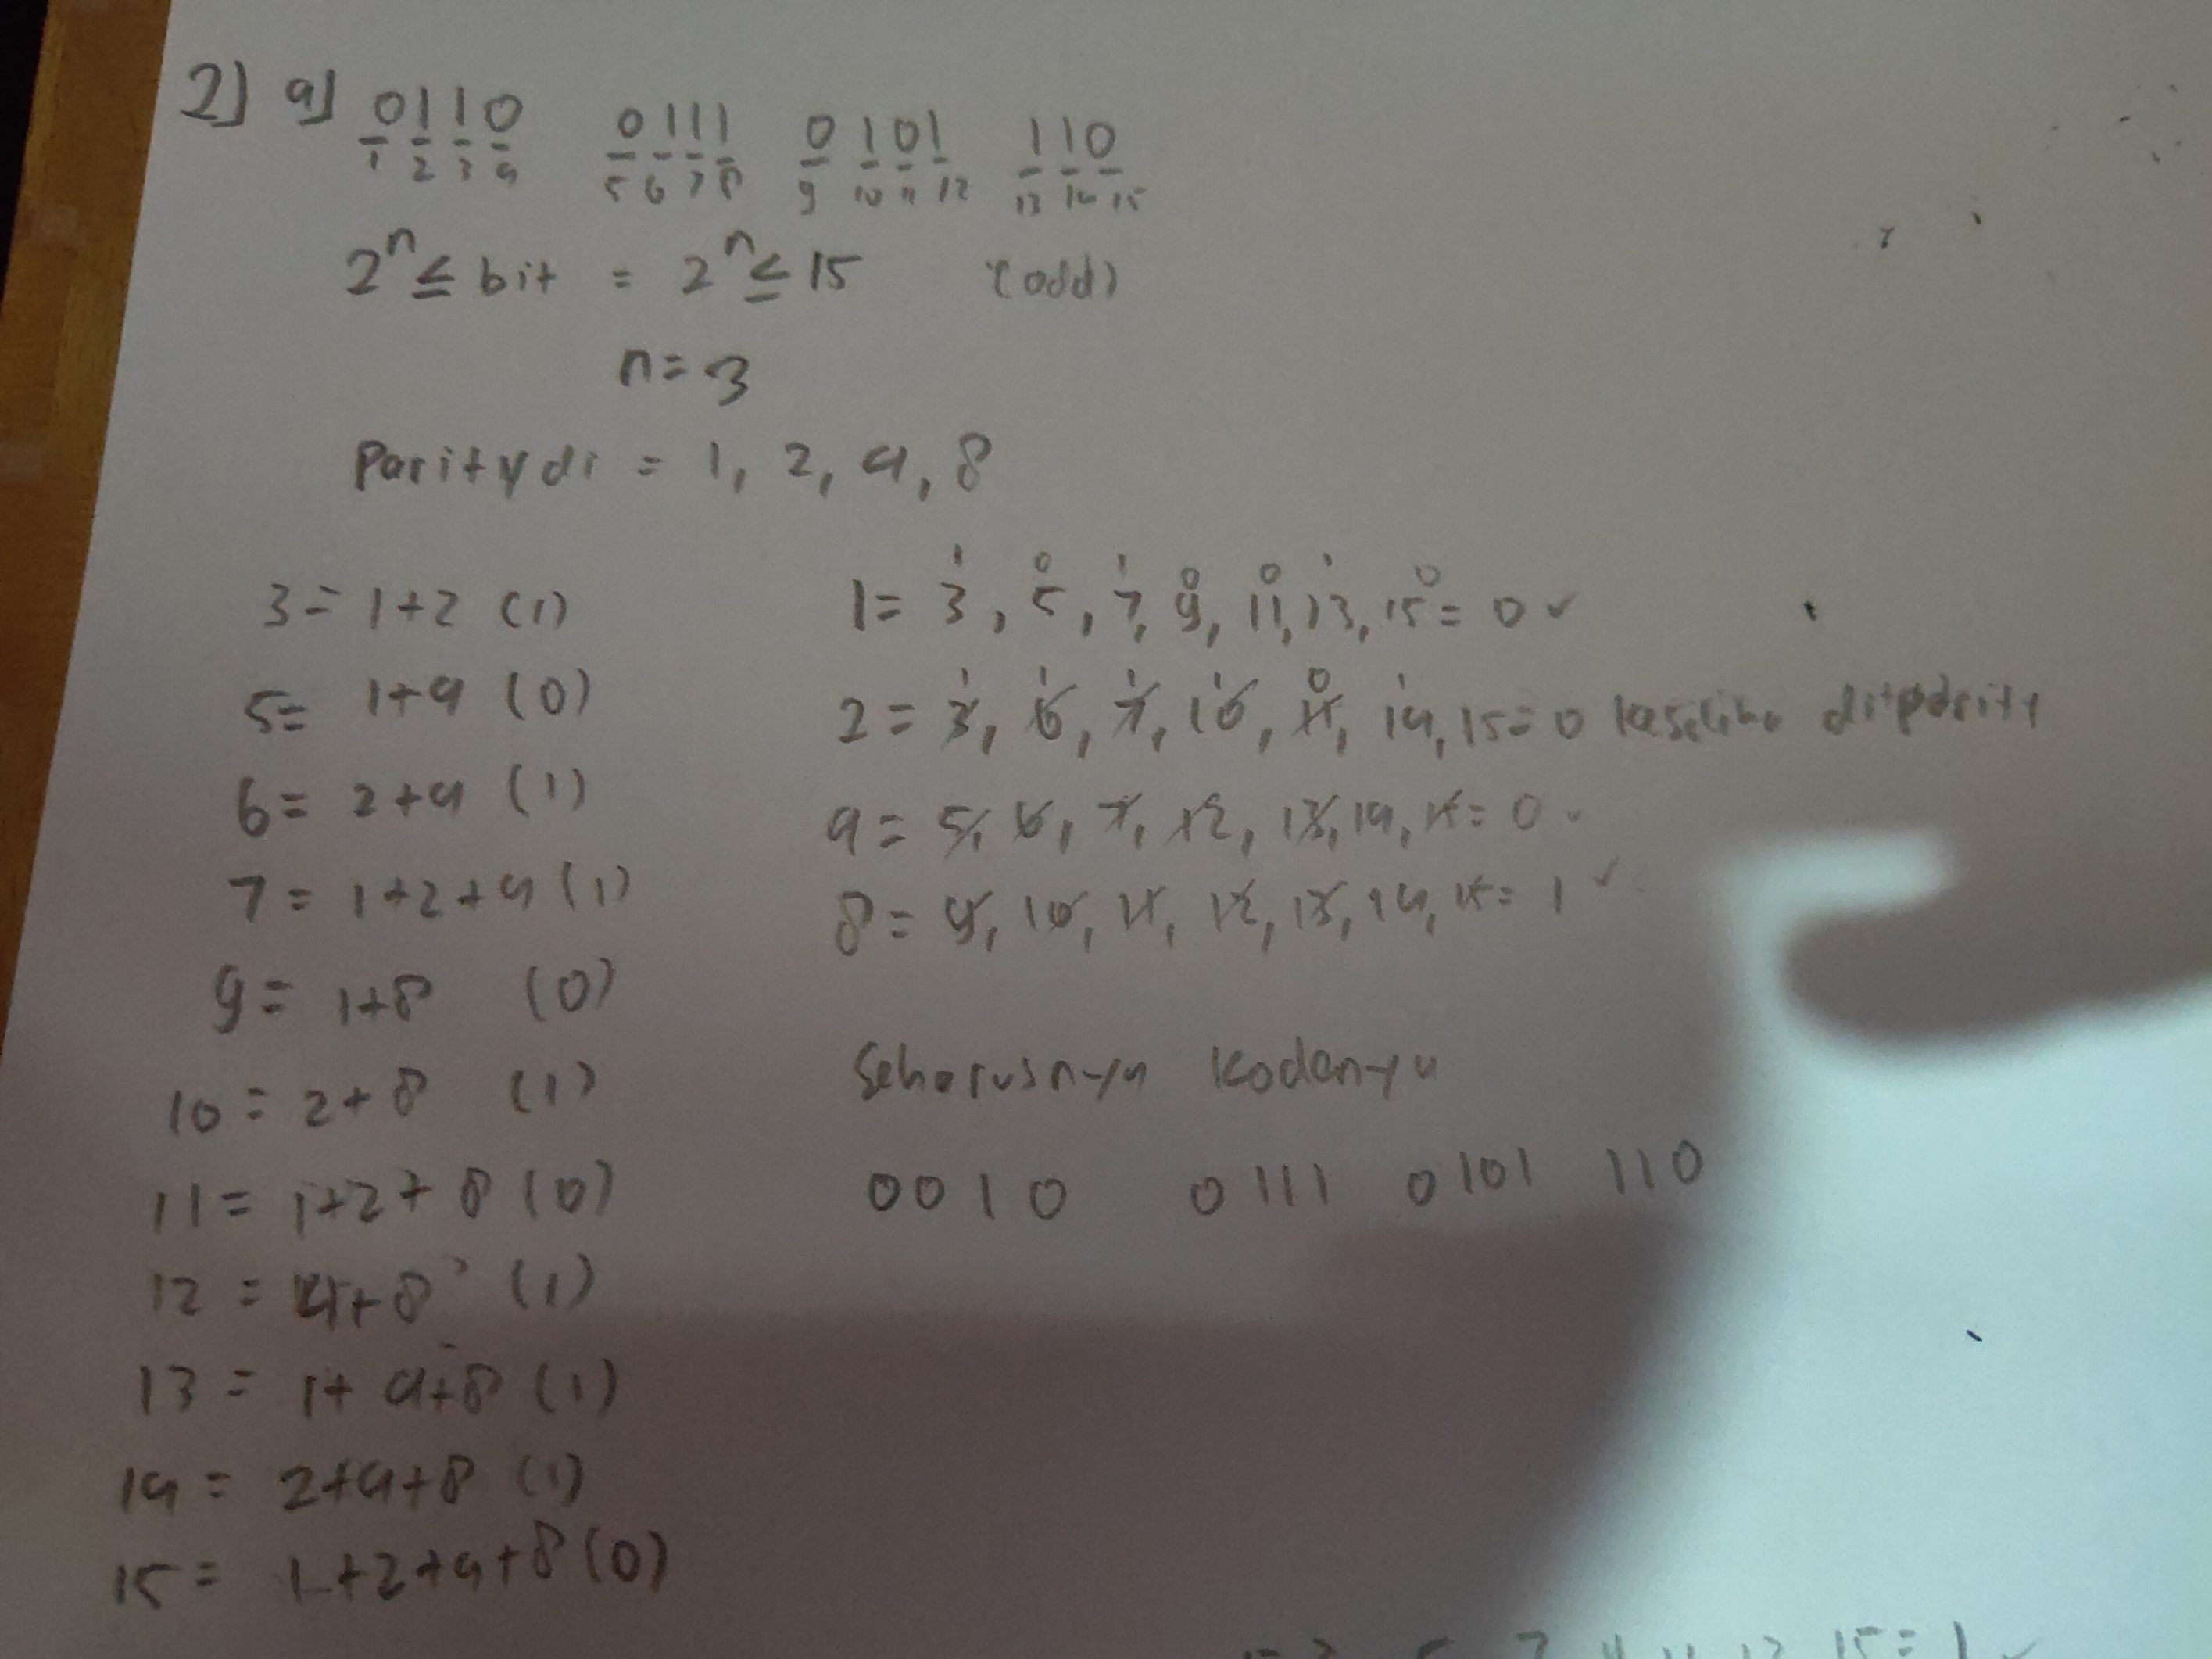 2) a) 0110 0111 0101 110
1 2 3 4 5 6 7 8 9 10 11 12 13 14 15
2^n ≤ bit = 2^n ≤ 15 (odd)
n = 3
Parity di = 1, 2, 4, 8
3 = 1+2 (1)
5 = 1+4 (0)
6 = 2+4 (1)
7 = 1+2+4 (1)
9 = 1+8 (0)
10 = 2+8 (1)
11 = 1+2+8 (0)
12 = 4+8 (1)
13 = 1+4+8 (1)
14 = 2+4+8 (1)
15 = 1+2+4+8 (0)
1 0 1 0 0 1 0
1 = 3, 5, 7, 9, 11, 13, 15 = 0 ✓
1 1 1 1 0 1
2 = 3, 6, 7, 10, 11, 14, 15 = 0 di parity
4 = 5, 6, 7, 12, 13, 14, 15 = 0 ✓
8 = 9, 10, 11, 12, 13, 14, 15 = 1 ✓
Seharusnya Kodenya
0010 0111 0101 110